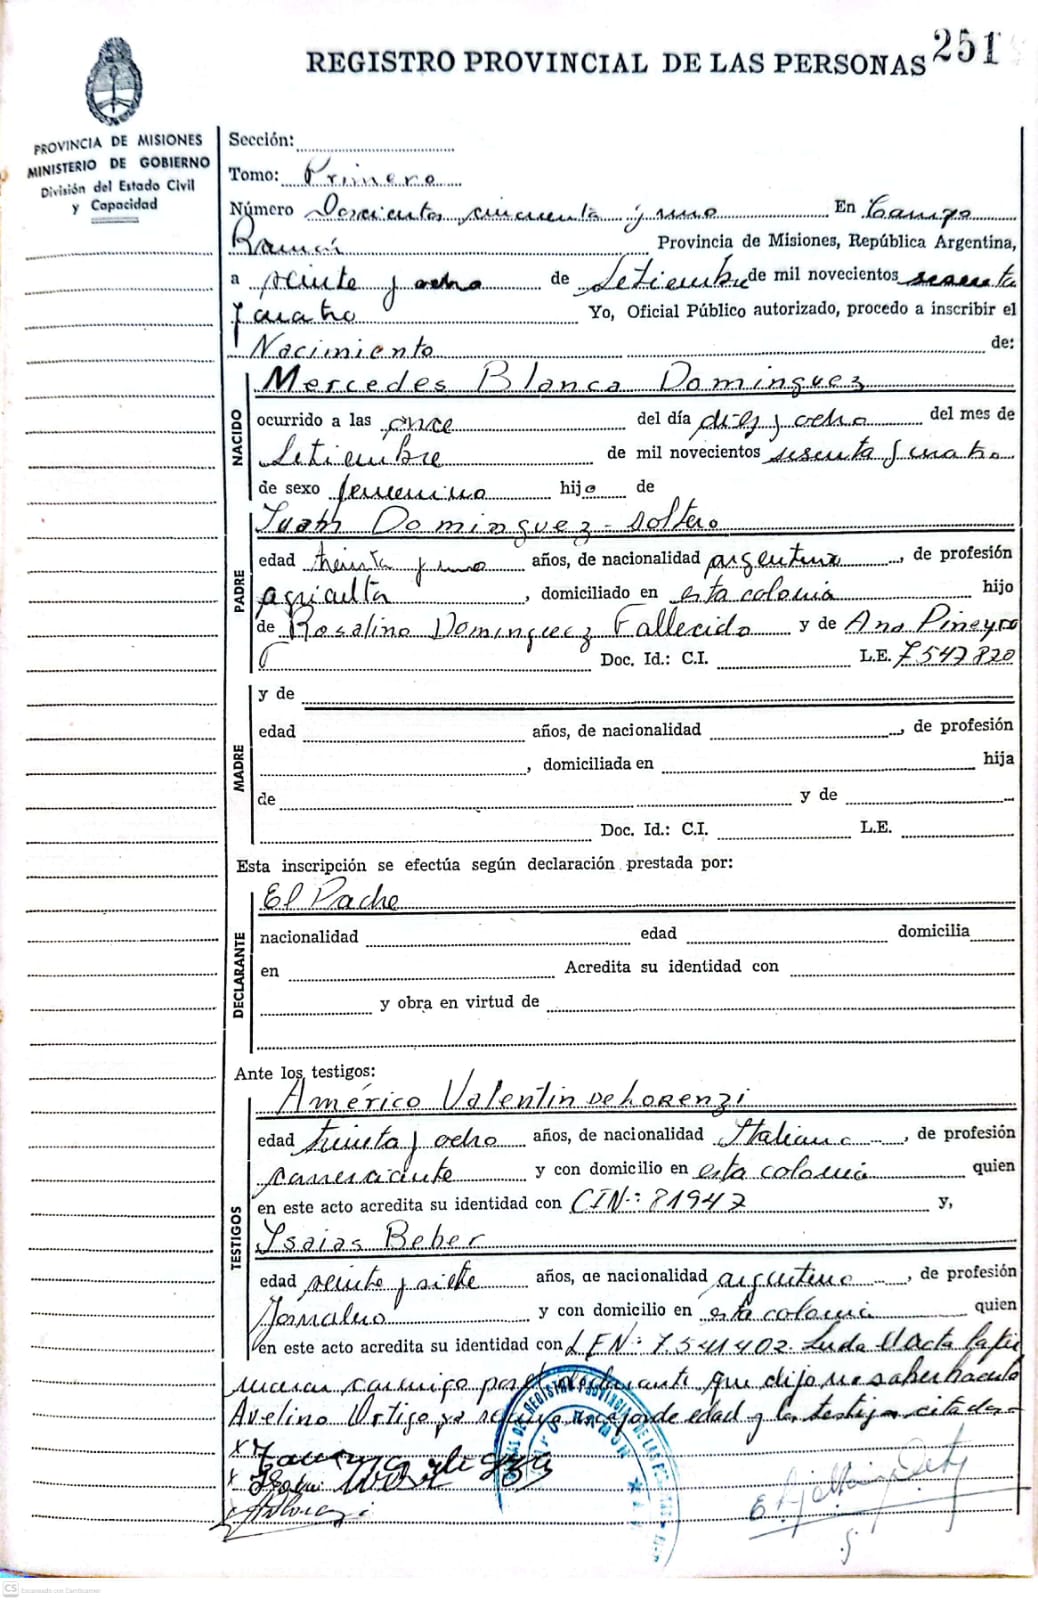 251
REGISTRO PROVINCIAL DE LAS PERSONAS
PROVINCIA DE MISIONES
MINISTERIO DE GOBIERNO
División del Estado Civil
y Capacidad
Sección:
Tomo: Primero
Número Doscientos cincuenta y uno En Campo
Ramón Provincia de Misiones, República Argentina,
a veinte y ocho de Setiembre de mil novecientos sesenta
y cuatro Yo, Oficial Público autorizado, procedo a inscribir el
Nacimiento de:
NACIDO
Mercedes Blanca Dominguez
ocurrido a las once del día diez y ocho del mes de
Setiembre de mil novecientos sesenta y cuatro
de sexo femenino hija de
PADRE
Juan Dominguez - soltero
edad treinta y uno años, de nacionalidad argentina, de profesión
agricultor, domiciliado en esta colonia hijo
de Rosalino Dominguez Fallecido y de Ana Pineyro
Doc. Id.: C.I. L.E. 7547820
MADRE
y de
edad años, de nacionalidad , de profesión
, domiciliada en hija
de y de
Doc. Id.: C.I. L.E.
Esta inscripción se efectúa según declaración prestada por:
DECLARANTE
El Padre
nacionalidad edad domicilia
en Acredita su identidad con
y obra en virtud de
Ante los testigos:
TESTIGOS
Américo Valentin DeLorenzi
edad treinta y ocho años, de nacionalidad Italiana, de profesión
comerciante y con domicilio en esta colonia quien
en este acto acredita su identidad con CIN: 81947 y,
Isaias Beber
edad veinte y siete años, de nacionalidad argentino, de profesión
Jornalero y con domicilio en esta colonia quien
en este acto acredita su identidad con LEN: 7.541402. Leída Acta la fir
maron conmigo por el declarante que dijo no saber hacerlo
Avelino Ortigoza mayor de edad y los testigos citados
CS Escaneado con CamScanner